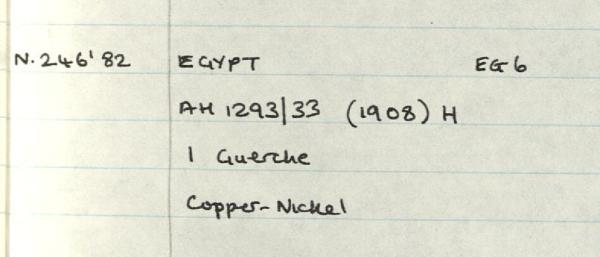 N.246'82 EGYPT EG6
AH 1293/33 (1908) H
1 Guerche
Copper-Nickel